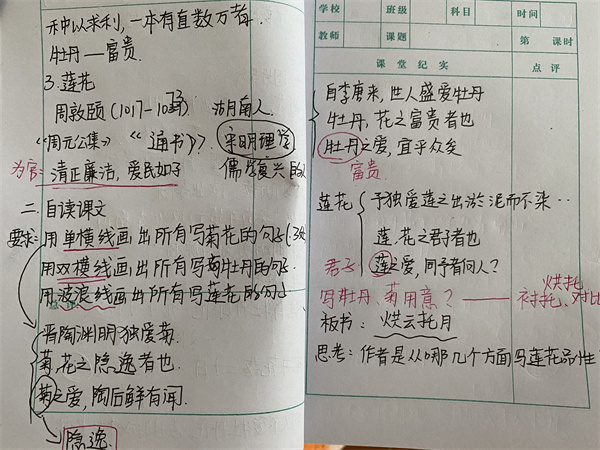 种以求利,一本有直数万者.
牡丹—富贵.
3.莲花
周敦颐(1017-1073) 湖南人.
《周元公集》 《通书》 宋明理学
为官: 清正廉洁,爱民如子 儒学复兴的
二 自读课文
要求: 用单横线画出所有写菊花的句子(3处
用双横线画出所有写牡丹的句子.
用波浪线画出所有写莲花的句子
晋陶渊明独爱菊.
菊,花之隐逸者也.
菊之爱,陶后鲜有闻.
隐逸.
学校 班级 科目 时间
教师 课题 第 课时
课堂纪实 点评
自李唐来,世人盛爱牡丹
牡丹,花之富贵者也
牡丹之爱,宜乎众矣
富贵
莲花 予独爱莲之出淤泥而不染…
莲,花之君子者也
君子 莲之爱,同予者何人?
写牡丹、菊用意? —— 衬托、对比
烘托
板书: 烘云托月
思考: 作者是从哪几个方面写莲花品性